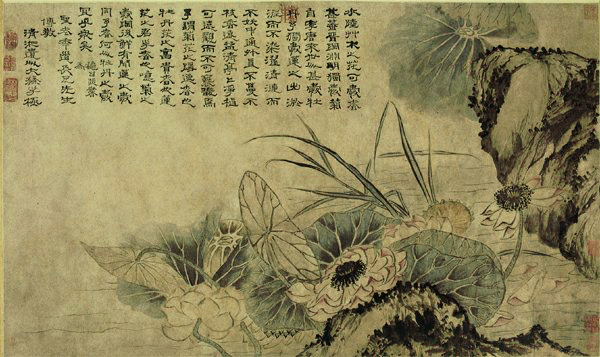 水陸艸木之花可愛者
甚蕃晉陶淵明獨愛菊
自李唐來世人甚愛牡
丹予獨愛蓮之出淤
泥而不染濯清漣而
不妖中通外直不蔓不
枝香遠益清亭亭淨植
可遠觀而不可褻翫焉
予謂菊花之隱逸者也
牡丹花之富貴者也蓮
花之君子者也噫菊之
愛陶後鮮有聞蓮之愛
同予者何人牡丹之愛
宜乎衆矣
先生
博教
清湘道人大滌子極